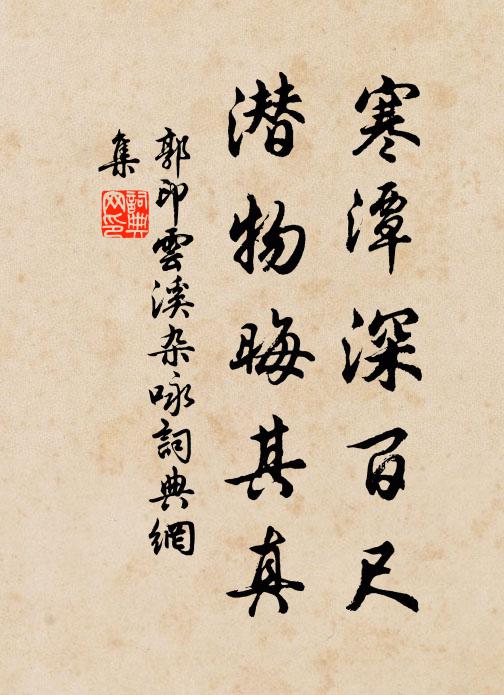 寒潭深百尺
潜物晦其真
郭印雲溪杂咏詞典網
集
詞典网印